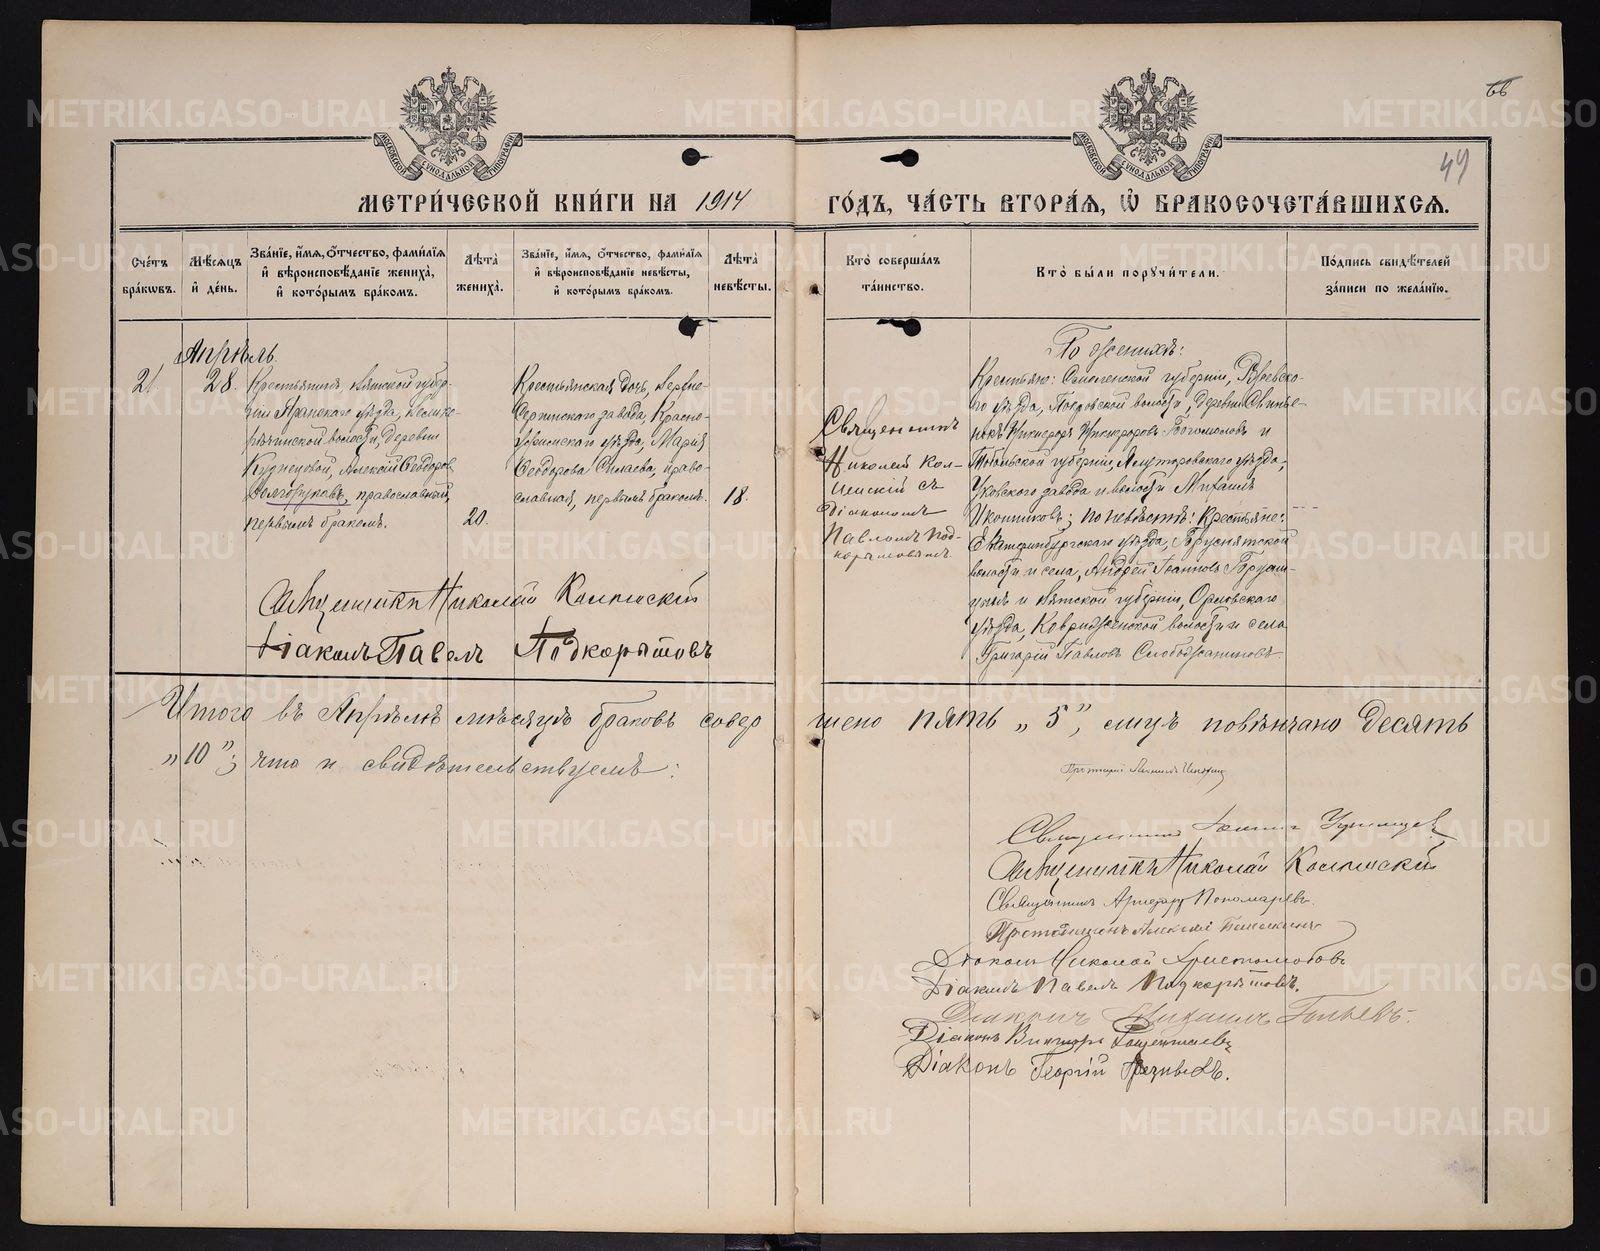 66
49
МОСКОВСКОЙ СѴНОДАЛЬНОЙ ТИПОГРАФІИ
МОСКОВСКОЙ СѴНОДАЛЬНОЙ ТИПОГРАФІИ
МЕТРИ́ЧЕСКОЙ КНИ́ГИ НА 1914 ГО́ДЪ, ЧА́СТЬ ВТОРА́Я, Ѽ БРАКОСОЧЕТА́ВШИХСЯ.
Сче́тъ бра́кωвъ.
Мѣ́сяцъ и҆ де́нь.
Зва́нїе, и҆́мя, ѻ҆́тчество, фами́лїя
и҆ вѣроисповѣ́данїе жениха̀,
и҆ кото́рымъ бра́комъ.
Лѣта̀ жениха̀.
Зва́нїе, и҆́мя, ѻ҆́тчество, фами́лїя
и҆ вѣроисповѣ́данїе невѣ́сты,
и҆ кото́рымъ бра́комъ.
Лѣта̀ невѣ́сты.
Кто̀ соверша́лъ та́инство.
Кто̀ бы́ли порꙋчи́тели.
По́дпись свидѣ́телей за́писи по жела́нїю.
Апрѣль.
21.
28.
Крестьянинъ Вятской губер-
ніи Яранскаго уѣзда, Велико-
рѣчинской волости, деревни
Кузнецовой, Алексій Ѳеодоровъ
Долгоруковъ, православный,
первымъ бракомъ.
20.
Крестьянская дочь, Верхне-
Сергинскаго завода, Красно-
уфимскаго уѣзда, Марія
Ѳеодорова Силаева, право-
славная, первымъ бракомъ.
18.
Священникъ
Николай Кол-
чинскій съ
діакономъ
Павломъ Под-
корытовымъ
По женихѣ:
Крестьяне: Смоленской губерніи,
го уѣзда, Покровской волости, деревни
Никифоръ Никифоровъ Богомоловъ и
Тобольской губерніи, Ялуторовскаго уѣзда,
Уковскаго завода и волости Михаилъ
Иконниковъ; по невѣстѣ: Крестьяне:
Екатеринбургскаго уѣзда, Бруснятской
волости и села, Андрей Іоанновъ Брусни-
цынъ и Вятской губерніи, Орловскаго
уѣзда, волости и села
Григорій Павловъ Слободчиковъ.
Священникъ Николай Колчинскій
Діаконъ Павелъ Подкорытовъ
Итого въ Апрѣлѣ мѣсяцѣ браковъ совер шено пять „5“, лицъ повѣнчано десять
„10“; что и свидѣтельствуемъ:
Протоіерей
Священникъ Іоаннъ
Священникъ Николай Колчинскій
Священникъ Пономаревъ.
Протодіаконъ Алексій
Діаконъ Николай Христолюбовъ
Діаконъ Павелъ Подкорытовъ.
Діаконъ Михаилъ
Діаконъ Викторъ
Діаконъ Георгій
METRIKI.GASO-URAL.RU